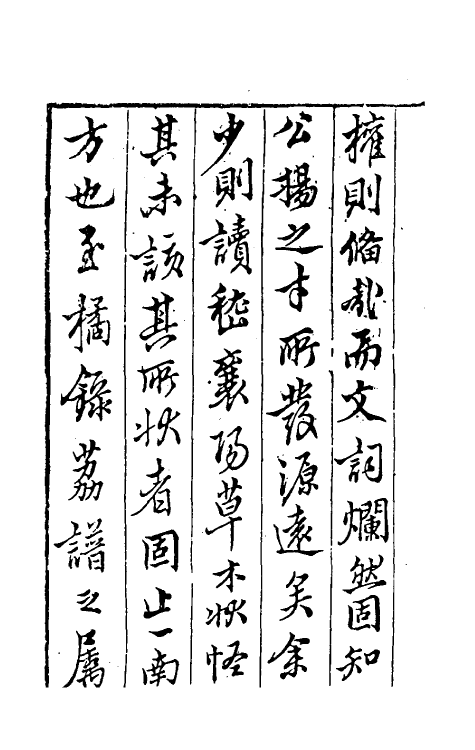 擁則備哉而文詞爛然固知
公揚之才所發源遠矣余
少則讀嵇襄陽草木狀怪
其未該其所狀者固止一南
方也至橘錄荔譜之屬